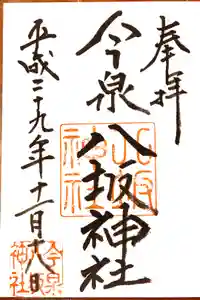 奉拝
今泉八坂神社
平成二十九年十一月十八日
八坂神社
今泉神社